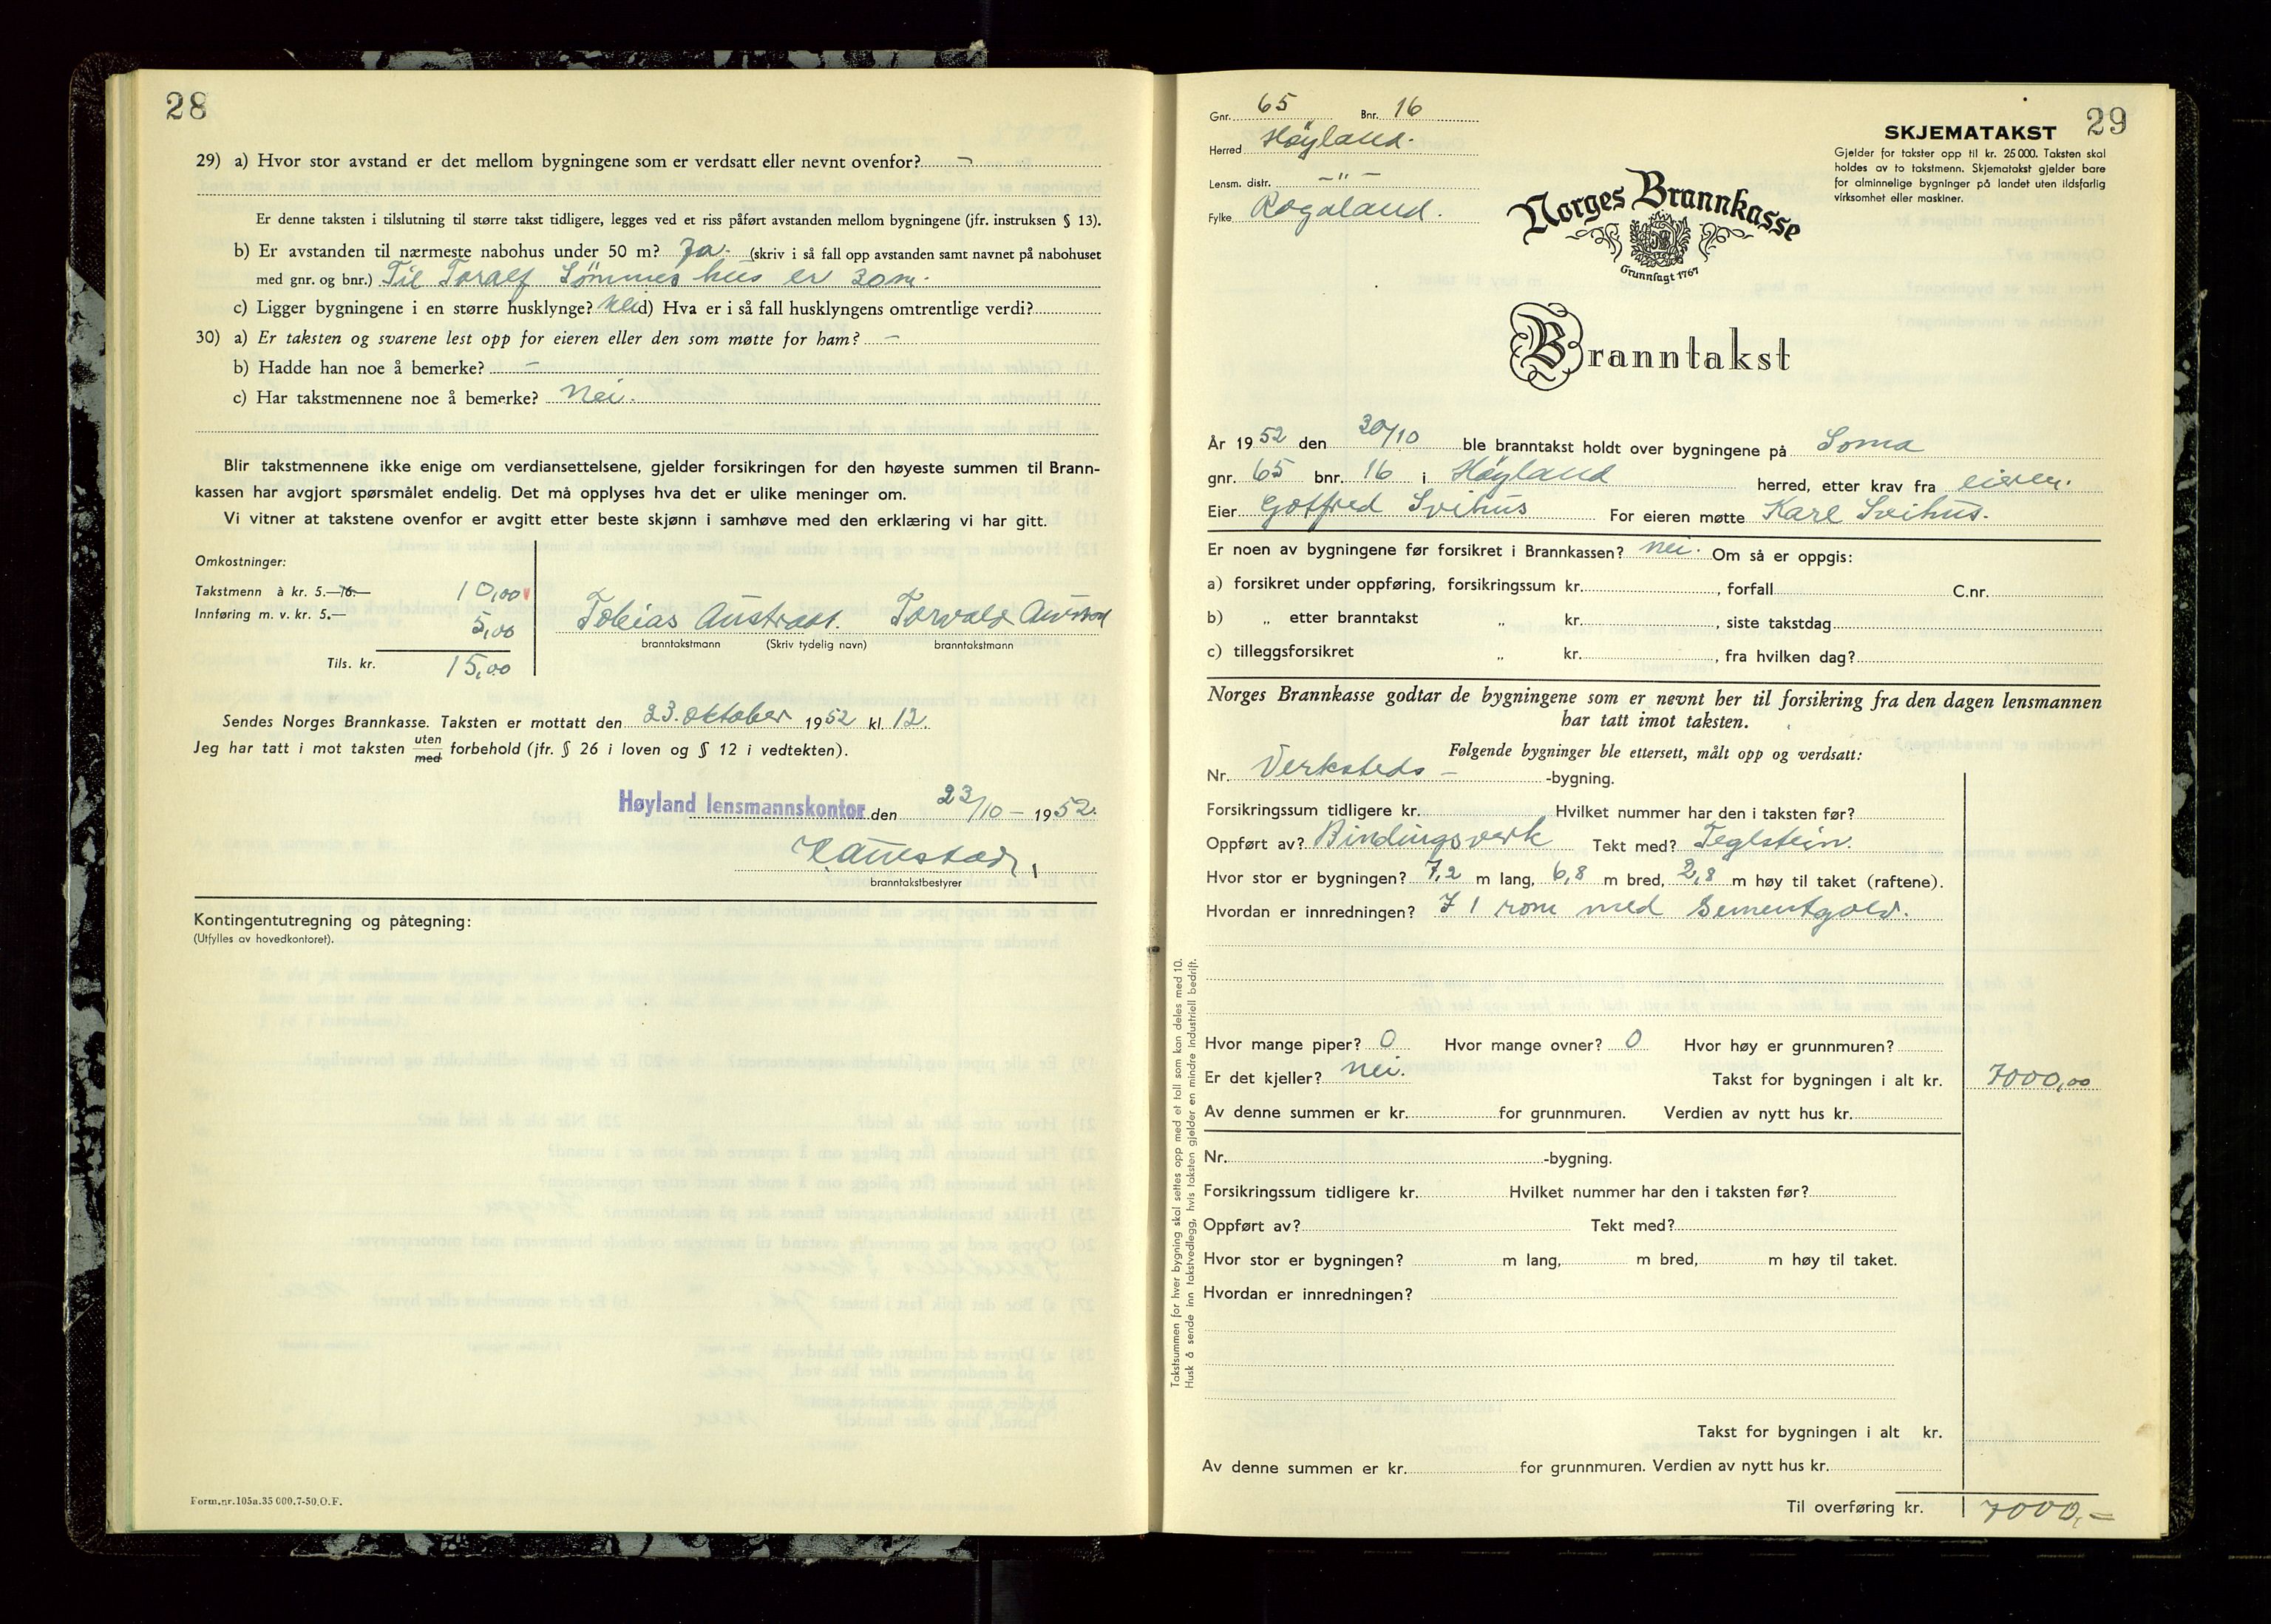 28
29) a) Hvor stor avstand er det mellom bygningene som er verdsatt eller nevnt ovenfor? –
Er denne taksten i tilslutning til større takst tidligere, legges ved et riss påført avstanden mellom bygningene (jfr. instruksen § 13).
b) Er avstanden til nærmeste nabohus under 50 m? Ja. (skriv i så fall opp avstanden samt navnet på nabohuset
med gnr. og bnr.) Til Toralf Sömmes hus er 30 m.
c) Ligger bygningene i en større husklynge? Nei d) Hva er i så fall husklyngens omtrentlige verdi?
30) a) Er taksten og svarene lest opp for eieren eller den som møtte for ham? –
b) Hadde han noe å bemerke? –
c) Har takstmennene noe å bemerke? Nei.
Blir takstmennene ikke enige om verdiansettelsene, gjelder forsikringen for den høyeste summen til Brann-
kassen har avgjort spørsmålet endelig. Det må opplyses hva det er ulike meninger om.
Vi vitner at takstene ovenfor er avgitt etter beste skjønn i samhøve med den erklæring vi har gitt.
Omkostninger:
Takstmenn à kr. 5.—10.— 10,00
Innføring m. v. kr. 5.— 5,00
Tils. kr. 15,00
Tobias Austrått. Torvald
branntakstmann (Skriv tydelig navn) branntakstmann
Sendes Norges Brannkasse. Taksten er mottatt den 23. oktober 1952 kl. 12.
Jeg har tatt i mot taksten uten med forbehold (jfr. § 26 i loven og § 12 i vedtekten).
Høyland lensmannskontor den 23/10 – 1952.
branntakstbestyrer
Kontingentutregning og påtegning:
(Utfylles av hovedkontoret).
Form.nr.105a.35 000.7-50.O.F.
29
Gnr. 65 Bnr. 16
Herred Höyland.
Lensm. distr. – " –
Fylke Rogaland.
SKJEMATAKST
Gjelder for takster opp til kr. 25 000. Taksten skal
holdes av to takstmenn. Skjematakst gjelder bare
for alminnelige bygninger på landet uten ildsfarlig
virksomhet eller maskiner.
Norges Brannkasse
Grunnlagt 1767
Branntakst
År 1952 den 30/10 ble branntakst holdt over bygningene på Soma
gnr. 65 bnr. 16 i Höyland herred, etter krav fra eieren.
Eier Gotfred Svihus For eieren møtte Karl Svihus.
Er noen av bygningene før forsikret i Brannkassen? nei. Om så er oppgis:
a) forsikret under oppføring, forsikringssum kr. , forfall C.nr.
b) „ etter branntakst „ kr. , siste takstdag
c) tilleggsforsikret „ kr. , fra hvilken dag?
Norges Brannkasse godtar de bygningene som er nevnt her til forsikring fra den dagen lensmannen
har tatt imot taksten.
Følgende bygninger ble ettersett, målt opp og verdsatt:
Nr. Verksteds – -bygning.
Forsikringssum tidligere kr. Hvilket nummer har den i taksten før?
Oppført av? Bindingsverk Tekt med? Teglstein.
Hvor stor er bygningen? 7,2 m lang, 6,8 m bred, 2,8 m høy til taket (raftene).
Hvordan er innredningen? I 1 rom med Sementgolv.
Hvor mange piper? 0 Hvor mange ovner? 0 Hvor høy er grunnmuren?
Er det kjeller? nei. Takst for bygningen i alt kr. 7000,00
Av denne summen er kr. for grunnmuren. Verdien av nytt hus kr.
Nr. -bygning.
Forsikringssum tidligere kr. Hvilket nummer har den i taksten før?
Oppført av? Tekt med?
Hvor stor er bygningen? m lang, m bred, m høy til taket.
Hvordan er innredningen?
Takst for bygningen i alt kr.
Av denne summen er kr. for grunnmuren. Verdien av nytt hus kr.
Til overføring kr. 7000,–
Takstsummen for hver bygning skal settes opp med et tall som kan deles med 10.
Husk å sende inn takstvedlegg, hvis taksten gjelder en mindre industriell bedrift.